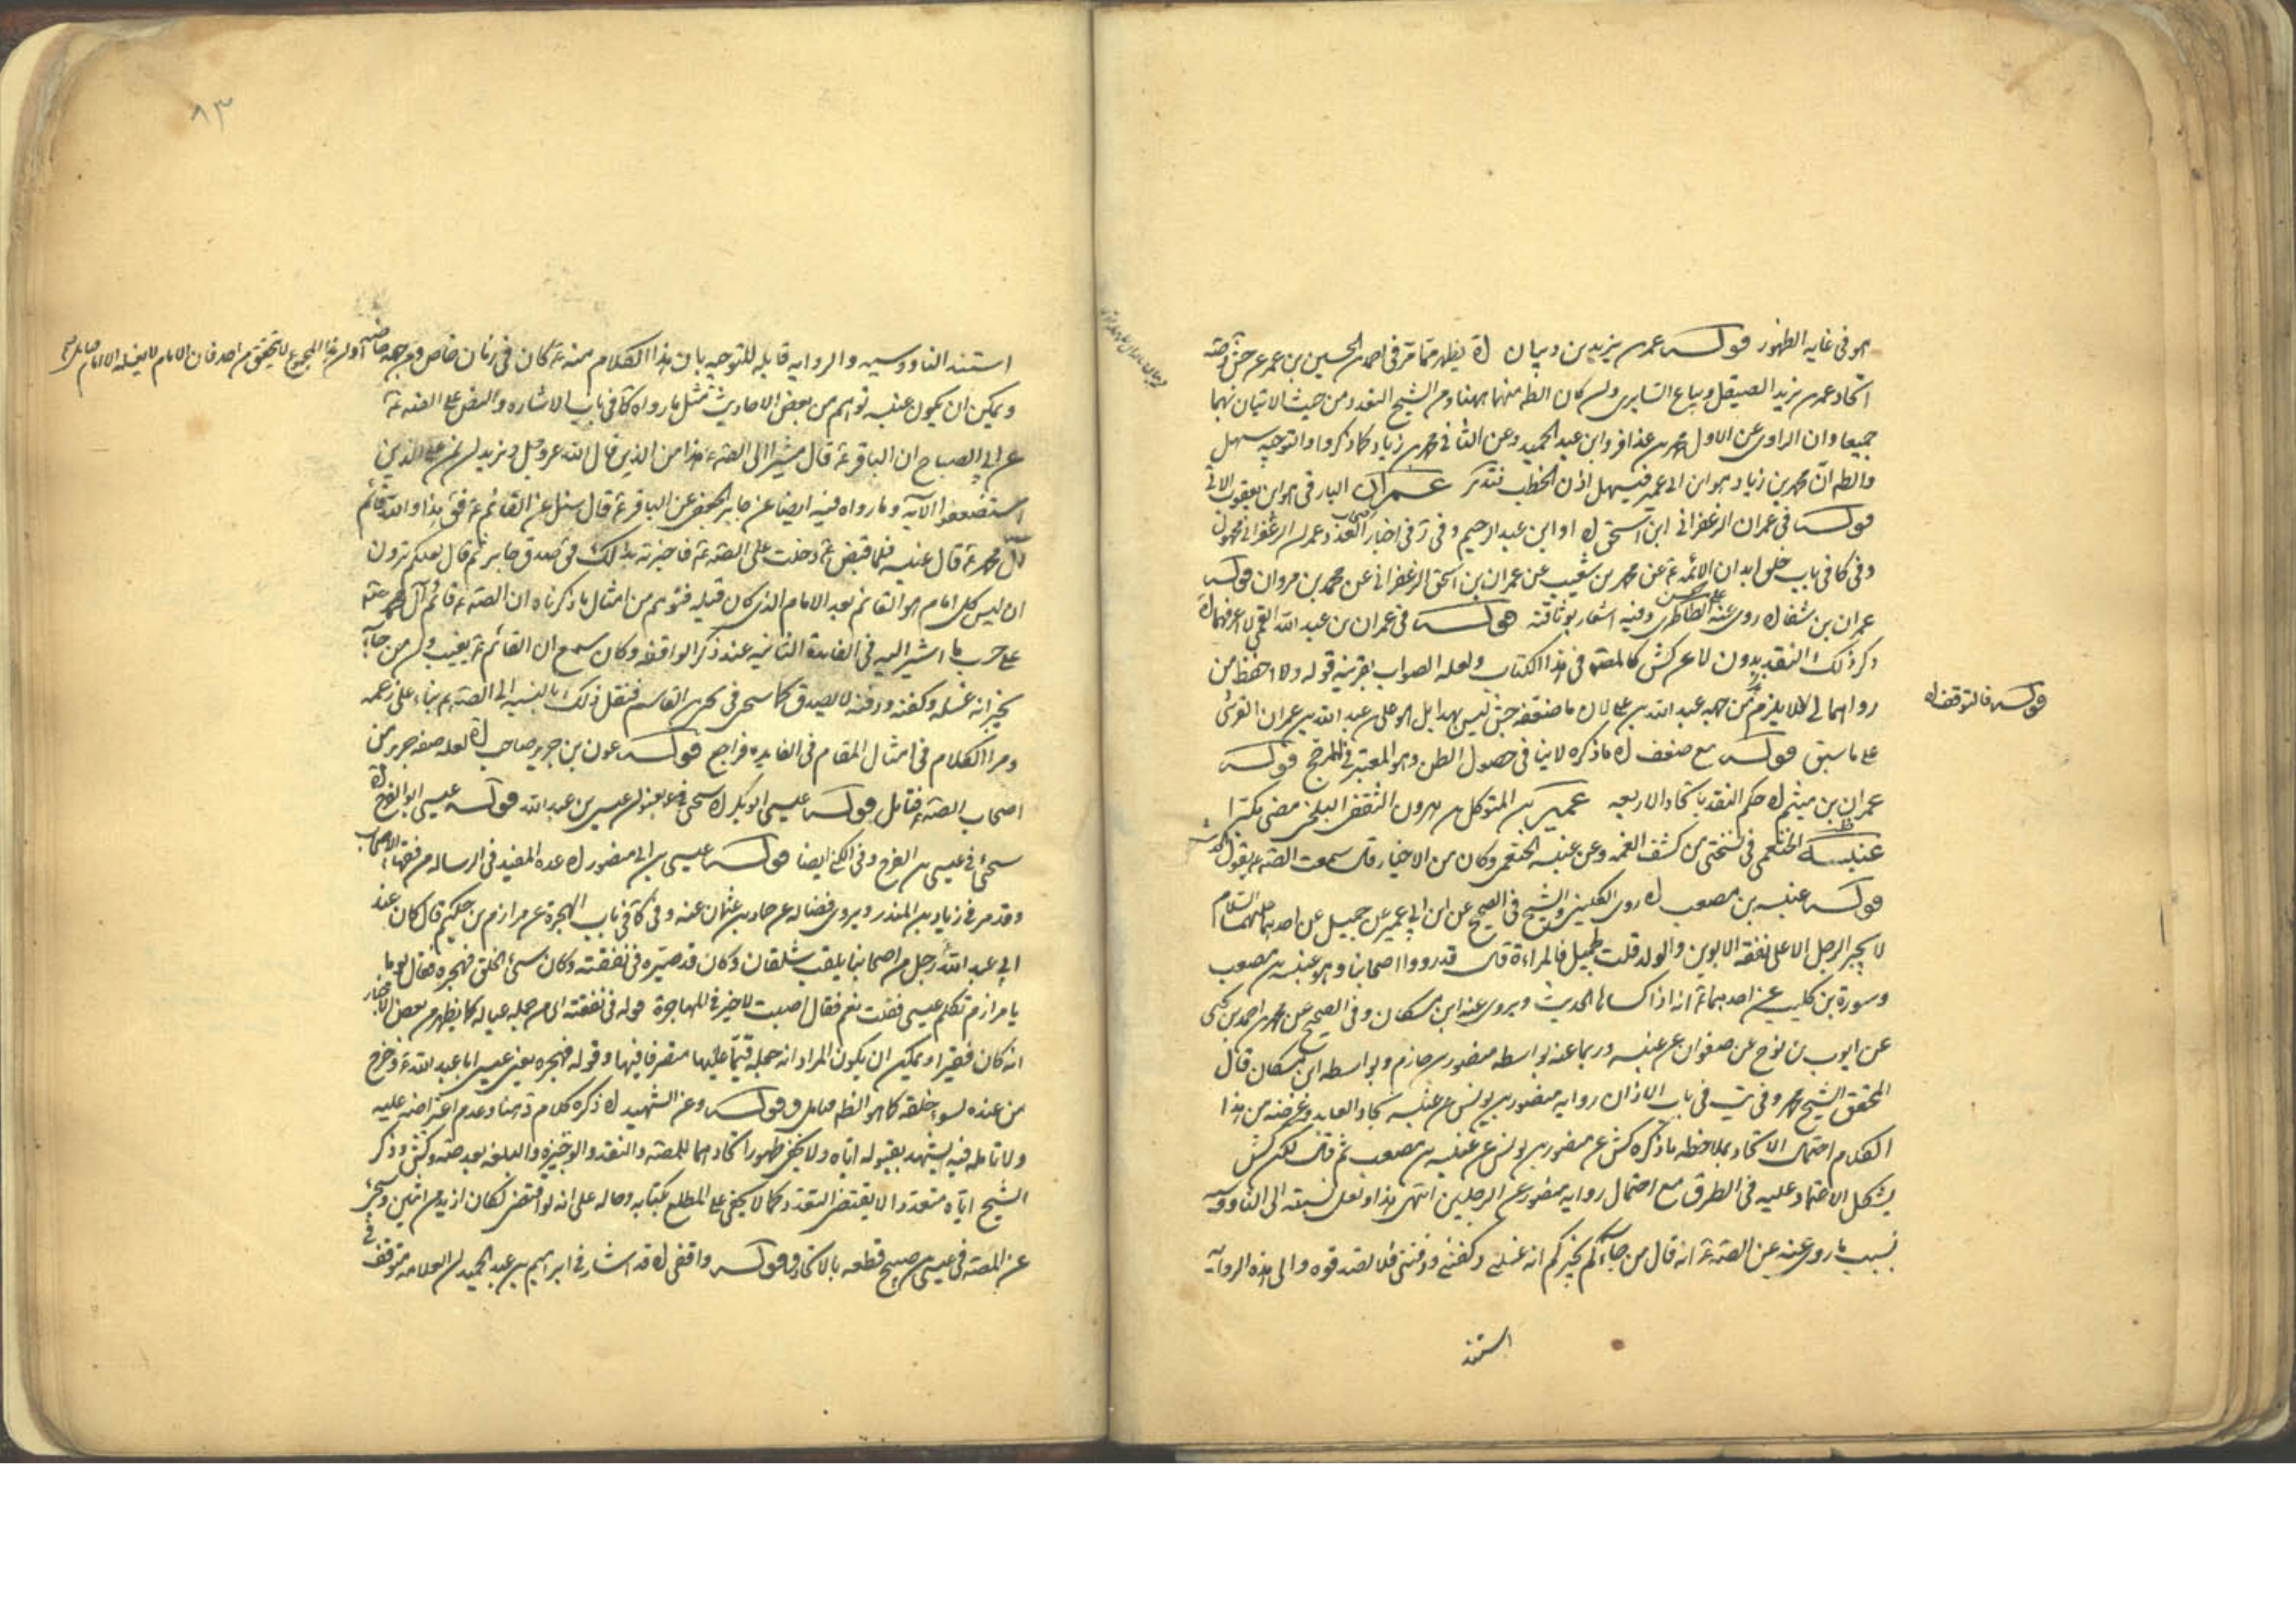 هو فى غايه الظهور قوله عمر بن يزيد بن ذبيان اه يظهر مما مر فى احمد بن الحسين بن عمر عن جش وصه
اتحاد عمر بن يزيد الصيقل وبياع السابرى وان كان الظ منهما ههنا ومن الشيخ التعدد من حيث الاتيان بهما
جميعا وان الراوى عن الاول محمد بن عذافر وابن عبد الحميد وعن الثانى محمد بن زياد كما ذكروا والتوجيه سهل
والظ ان محمد بن زياد هو ابن ابى عمير فيسهل اذن الخطب فتدبر عمران البارقى هو ابن يعقوب الاتى
قوله فى عمران الزعفرانى ابن اسحق اه او ابن عبد الرحيم وفى فى اخبار العدد وعمران الزعفرانى مجهول
وفى كافى باب خلق ابدان الائمه ع عن محمد بن شعيب عن عمران بن اسحق الزعفرانى عن محمد بن مروان قوله
عمران بن شفا اه روى عنه على بن الحسن الطاطرى وفيه اشعار بوثاقته قوله فى عمران بن عبد الله القمى
ذكر ذلك النقد بدون لا عن كش كالمصنف فى هذا الكتاب ولعله الصواب بقرينه قوله
رواهما لئلا يلزم من جهه عبد الله بن على لان ما ضعفه جش ليس بهذا بل هو على بن عبد الله بن عمران القرشى
قوله فالتوقف اه
على ما سبق قوله مع ضعف اه ما ذكره لا ينافى حصول الظن وهو المعتبر فى المرجح قوله
عمران بن ميثم اه حكم النقد باتحاد الاربعه عمير بن المتوكل بن هرون الثقفى البلخى مضى مكبرا
عنبسة الخثعمى فى نسختى من كشف الغمه وعن عنبسه الخثعمى وكان من الاخيار قال سمعت الصه ع يقول
قوله عنبسه بن مصعب اه روى الكلينى والشيخ فى الصحيح عن ابن ابى عمير عن جميل عن احدهما عليهما السلام
لا يجبر الرجل الا على نفقه الابوين والولد قلت لجميل فالمراءة قال قد رووا اصحابنا وهو عنبسه بن مصعب
وسورة بن كليب عن احدهما ع انه اذا كساها الحديث ويروى عنه ابن مسكان وفى الصحيح عن محمد بن احمد بن يحيى
عن ايوب بن نوح عن صفوان عن عنبسه وربما عنه بواسطه منصور بن حازم وبواسطه ابن مسكان قال
المحقق الشيخ محمد وفى يب فى باب الاذان روايه منصور بن يونس عن عنبسه بجاد العابد وغرضه من هذا
الكلام احتمال الاتحاد بملاحظه ما ذكره كش عن منصور بن يونس عن عنبسه بن مصعب ثم قال لكن كش
يشكل الاعتماد عليه فى الطرق مع احتمال روايه منصور عن الرجلين انتهى هذا ولعل نسبته الى الناووسيه
بسبب ما روى عنه عن الصه ع انه قال من جاءكم يخبركم انه غسلنى وكفننى ودفننى فلا تصدقوه والى هذه الروايه
استند
٨٣
استند الناووسيه والروايه قابله للتوجيه بان هذا الكلام منه ع كان فى زمان خاص
ويمكن ان يكون عنبسه توهم من بعض الاحاديث مثل ما رواه فى كا فى باب الاشاره والنص على الصه ع
عن ابى الصباح ان الباقر ع قال مشيرا الى الصه ع هذا من الذين قال الله عز وجل ونريد ان نمن على الذين
استضعفوا الآيه وما رواه فيه ايضا عن جابر الجعفى عن الباقر ع قال سئل عن القائم ع فق هذا والله قائم
آل محمد ع قال عنبسه فلما قبض ع دخلت على الصه ع فاخبرته بذلك فق صدق جابر ثم قال لعلكم ترون
ان ليس كل امام هو القائم بعد الامام الذى كان قبله فتوهم من امثال ما ذكرناه ان الصه ع قائم آل محمد حقه
على حسب ما اشير اليه فى الفايدة الثانيه عند ذكر الواقفه وكان سمع ان القائم ع يغيب وان من جاء
يخبر انه غسله وكفنه ودفنه لا يصدق كما سيجئ فى يحيى بن القاسم فنقل ذلك بالنسبه الى الصه ع بناء على زعمه
ومر الكلام فى امثال المقام فى الفايده فراجع قوله عون بن جرير صاحب اه لعله صفه جرير من
اصحاب الصه ع فتامل قوله عيسى ابو بكر اه سيجئ بعنوان عيسى بن عبد الله قوله عيسى ابو الفرج اه
سيجئ فى عيسى بن الفرج وفى الكنى ايضا قوله عيسى بن ابى منصور اه عده المفيد فى الرساله من فقهاء الاصحاب
وقد مر فى زياد بن المنذر ويروى فضاله عن حماد بن عثمان عنه وفى كا فى باب الهجرة عن مرازم بن حكيم قال كان عند
ابى عبد الله رجل من اصحابنا يلقب شلقان وكان قد صيره فى نفقته وكان سيئ الخلق فهجره فقال يوما
يا مرازم تكلم عيسى فقلت نعم فقال اصبت لا خير فى المهاجرة قوله فى نفقته اى من جمله عياله كما يظهر من بعض الاخبار
انه كان فقيرا ويمكن ان يكون المراد انه جعله قيما عليها متصرفا فيها وقوله فهجره يعنى عيسى ابا عبد الله ع وخرج
من عنده لسوء خلقه كما هو الظ فتامل قوله وعن الشهيد اه ذكره كلام د هنا وعدم اعتراضه عليه
ولا تامله فيه يشهد بقبوله اياه ولا يخفى ظهور اتحادهما للمصنف والنقد والوجيزه والبلغه بعد صه وكش وذكر
الشيخ اياه متعددا لا يقتضى التعدد كما لا يخفى على المطلع بكتابه وحاله على انه لو اقتضى لكان ازيد من اثنين وسيجئ
عن المصنف فى عيسى بن صبيح قطعه بالاتحاد قوله واقفى اه قد اشار فى ابراهيم بن عبد الحميد ان العلامه متوقف فى